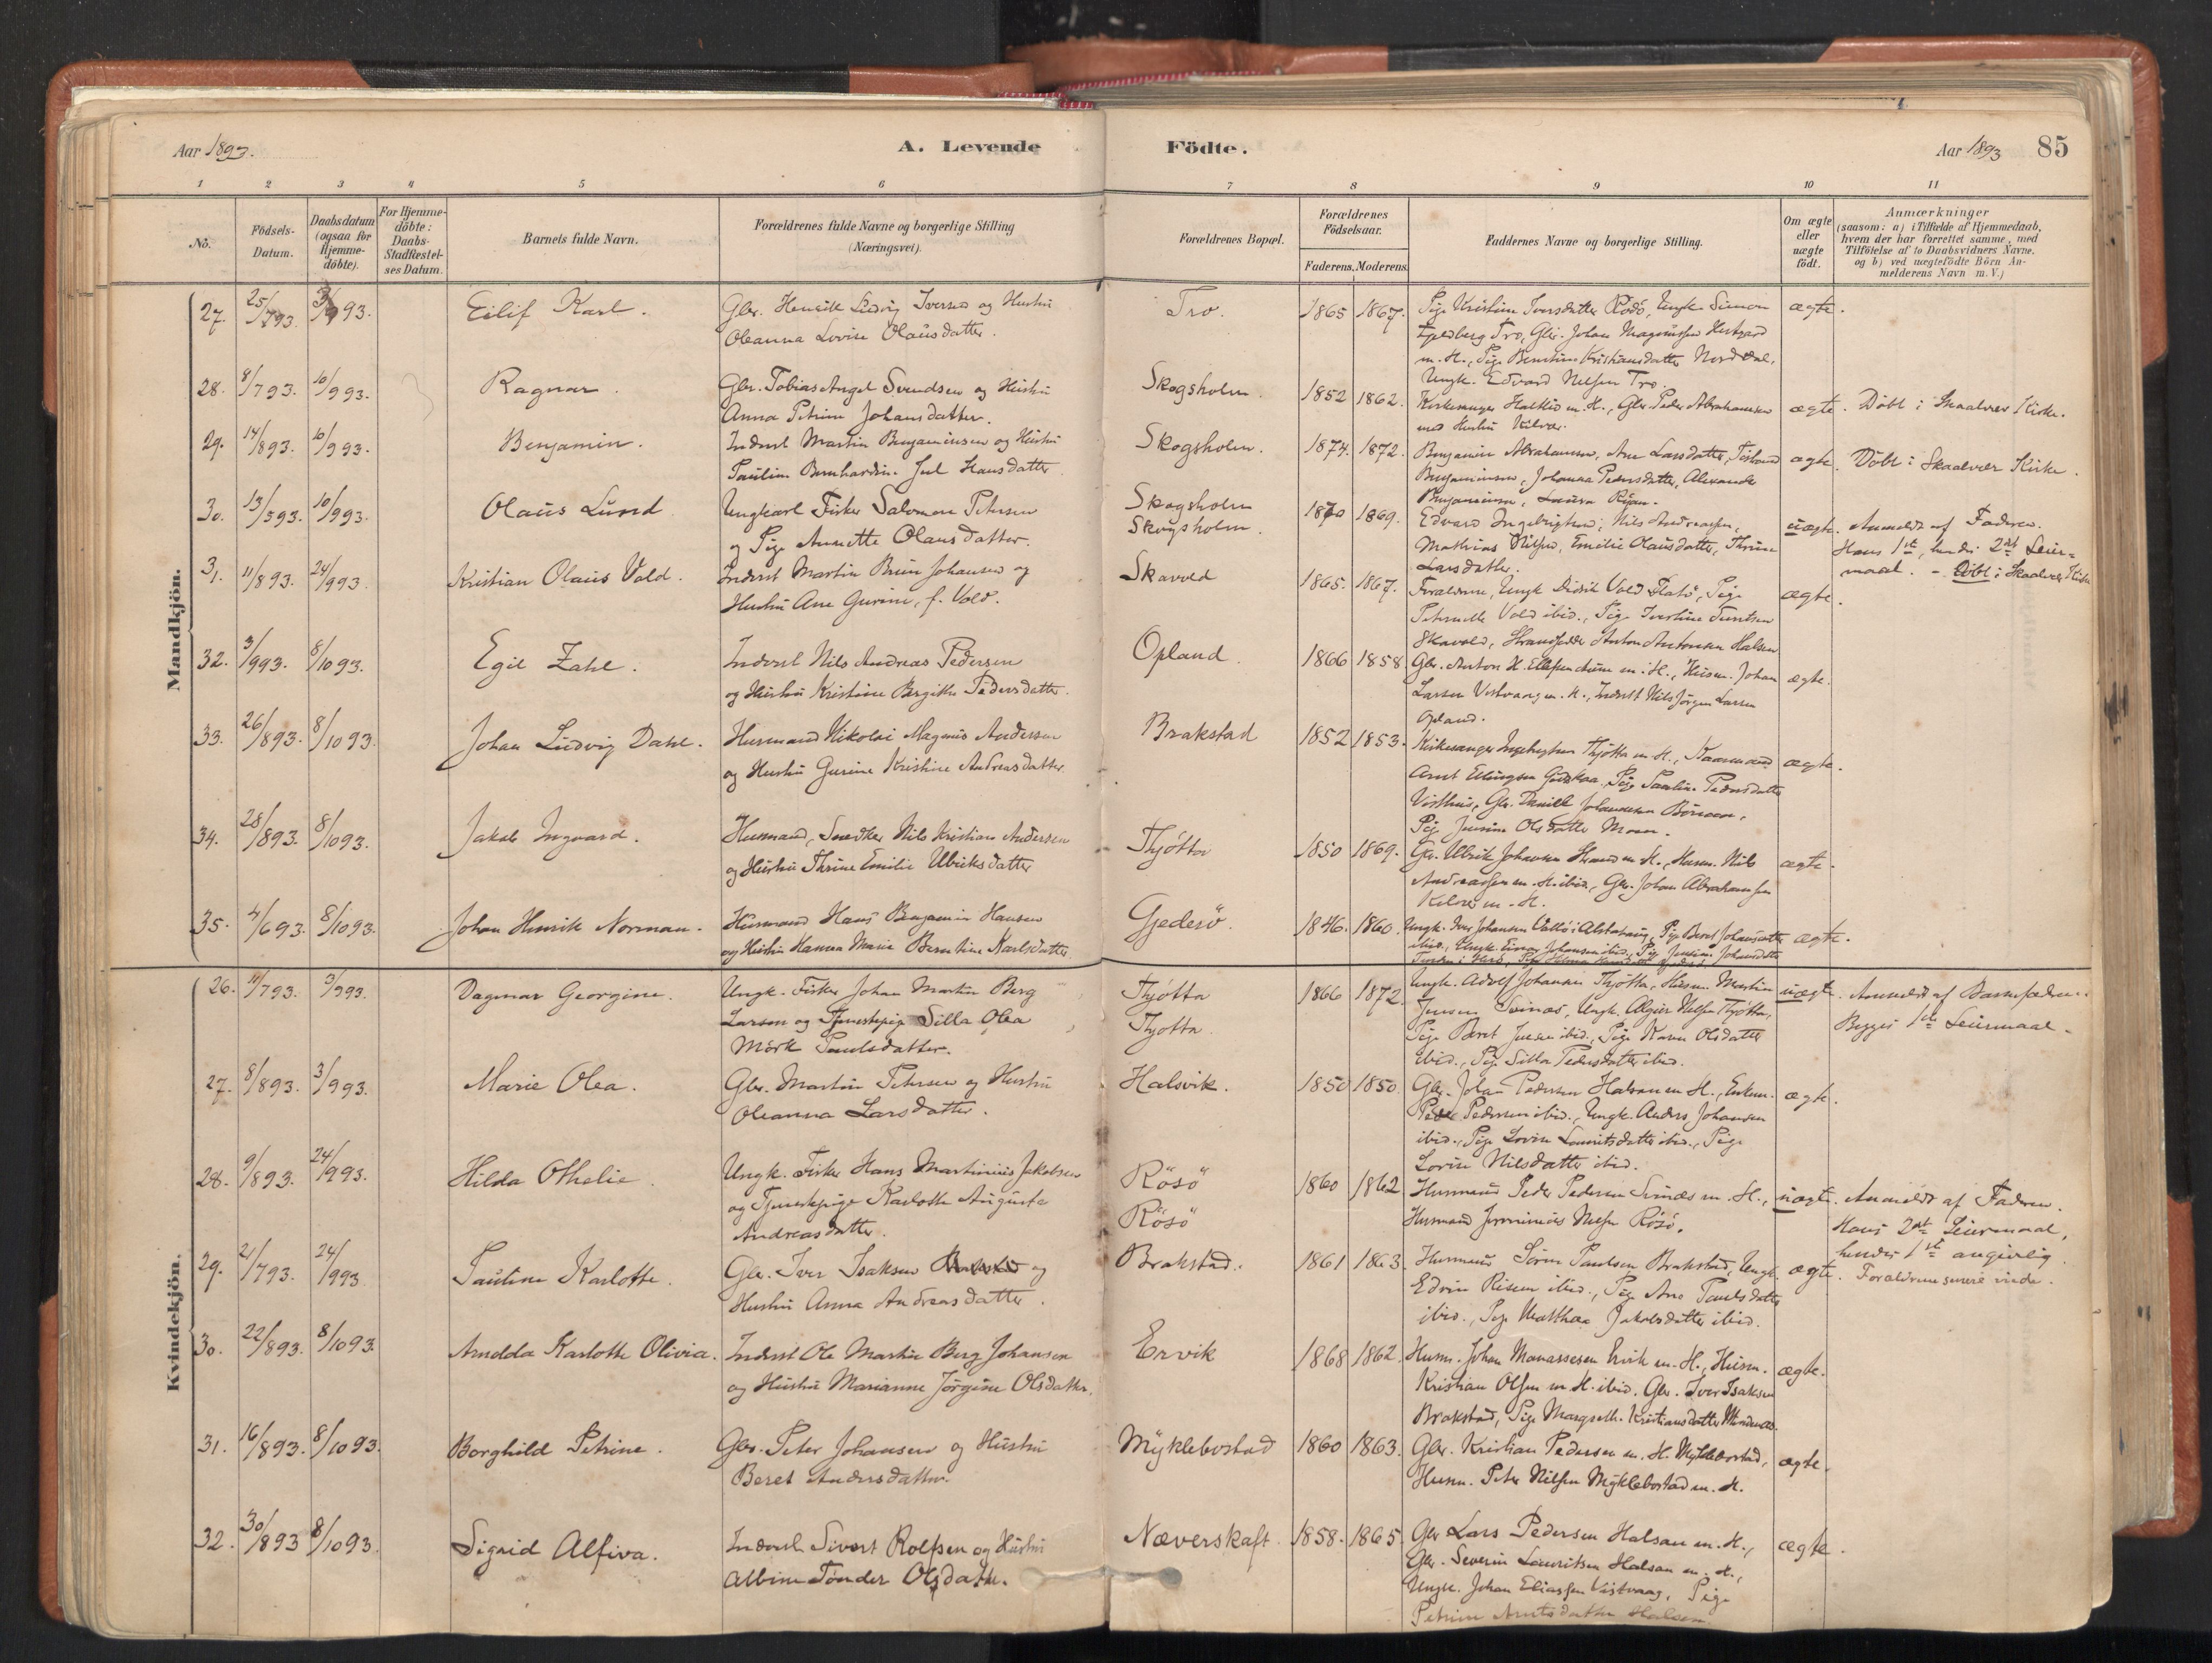 Aar 1893.
A. Levende
Födte.
Aar 1893
85
1 2 3 4 5 6 7 8 9 10 11
No.
Födsels-Datum.
Daabsdatum (ogsaa for Hjemme-döbte).
For Hjemme-döbte: Daabs-Stadfæstel-ses Datum.
Barnets fulde Navn.
Forældrenes fulde Navne og borgerlige Stilling
(Næringsvei).
Forældrenes Bopæl.
Forældrenes Födselsaar.
Faderens. Moderens.
Faddernes Navne og borgerlige Stilling.
Om ægte eller uægte födt.
Anmærkninger
(saasom: a) i Tilfælde af Hjemmedaab,
hvem der har forrettet samme, med
Tilföielse af to Daabsvidners Navne.
og b) ved uægtefödte Börn An-
melderens Navn m. V.)
Mandkjön.
27. 25/793. 3/993. Eilif Karl. Gbr. Henrik Ludvig Iversen og Hustru
Oleanna Lovise Olausdatter.
Tro. 1865 1867. Pige Kristine Iversdatter Rödö, Ungk. Simon
Tro, Gbr. Johan Magnussen
m. H., Pige Kristiansdatter
Ungk. Edvard Nilsen Tro.
ægte.
28. 8/793. 10/993. Ragnar. Gbr. Tobias Angel Svendsen og Hustru
Anna Petrine Johansdatter.
Skogsholm. 1852 1862. Kirkesanger m. H., Gbr. Peder Abrahamsen
med Hustru Kilvær.
ægte. Döbt i Skaalvær Kirke.
29. 14/893. 10/993. Benjamin. Inderst Martin Benjaminsen og Hustru
Pauline Bernhardine Juul Hansdatter
Skogsholm. 1874. 1872. Benjamin Abrahamsen, Ane Larsdatter,
Benjaminsen, Johanna Pedersdatter, Alexander
Benjaminsen, Laura
ægte. Döbt i Skaalvær Kirke.
30. 13/593. 10/993. Olaus Lund Ungkarl Fisker Salomon Petersen
og Pige Annette Olausdatter.
Skogsholm
Skogsholm.
1870 1869. Edvard Ingebrigtsen, Nils Andreassen,
Mathias Nilsen, Emilie Olausdatter, Thrine
Larsdatter.
uægte. Anmeldt af Faderen.
Hans 1ste, hendes 2det Leier-
maal. - Döbt i Skaalvær Kirke
31. 11/893. 24/993. Kristian Olaus Vold. Inderst Martin Brun Johansen og
Hustru Ane Gurine, f. Vold.
Skavold 1865. 1867. Forældrene, Ungk. Didrik Vold Flatö, Pige
Petrnelle Vold ibid., Pige Iverine
Skavold, Anton Antonsen Halsen
ægte.
32. 3/993. 8/1093. Egil Zahl. Inderst Nils Andreas Pedersen
og Hustru Kristine Bergitte Pedersdatter.
Opland. 1866 1858 Gbr. Anton H. m. H., Husm. Johan
Larsen Vistvaag m. H., Inderst Nils Jörgen Larsen
Opland.
ægte.
33. 26/893. 8/1093. Johan Ludvig Dahl. Husmand Nikolai Magnus Andersen
og Hustru Gurine Kristine Andreasdatter
Brakstad 1852 1853. Kirkesanger Ingebrigtsen Thjötta m. H., Kaarmand
Arnt Ellingsen, Pige Pauline Pedersdatter
Visthus, Gbr. Daniel Johannesen
Pige Olsdatter Moen.
ægte.
34. 28/893. 8/1093. Jakob Ingvard. Husmand, Snedker Nils Kristian Andersen
og Hustru Thrine Emilie Ulriksdatter
Thjötta 1850 1869. Gbr. Ulrik Johansen m. H., Husm. Nils
Andreassen m. H. ibid., Gbr. Johan Abrahamsen
Kilvær m. H.
ægte.
35. 4/693. 8/1093. Johan Henrik Norman. Husmand Hans Benjamin Hansen
og Hustru Hanna Marie Berntine Karlsdatter
Gjedesö. 1846. 1860. Ungk. Iver Johansen i Alstahaug, Pige Beret Johansdatter
ibid., Ungk. Einar Johansen ibid., Pige Johansdatter
ægte.
Kvindekjön.
26. 11/793. 3/993. Dagmar Georgine. Ungk. Fisker Johan Martin Berg
Larsen og Tjenestepige Silla Olea
Mörk Paulsdatter.
Thjötta
Thjötta.
1866 1872 Ungk. Adolf Johansen Thjötta, Husm. Martin
Jensen Svinnes, Ungk. Nilsen Thjötta,
Pige Beret Jensen ibid., Pige Karen Olsdatter
ibid., Pige Silla Pedersdatter ibid.
uægte. Anmeldt af Barnefaderen.
Begges 1ste Leiermaal.
27. 8/893. 3/993. Marie Olea. Gbr. Martin Petersen og Hustru
Oleanna Larsdatter.
Halsvik. 1850 1850 Gbr. Johan Pedersen Halsan m. H., Enkem.
Peder Pedersen ibid., Ungk. Anders Johansen
ibid., Pige Lovise Lauritsdatter ibid., Pige
Lovise Nilsdatter ibid.
ægte.
28. 9/893. 24/993. Hilda Othelie. Ungk. Fisker Hans Martinius Jakobsen
og Tjenestepige Karlotte Auguste
Andreasdatter.
Rösö
Rösö
1860 1862 Husmand Peder Pedersen Svinnes m. H.,
Husmand Nilsen Rösö.
uægte. Anmeldt af Faderen.
Hans 2det Leiermaal,
hendes 1ste angivelig.
Forældrene senere viede.
29. 21/793. 24/993. Pauline Karlotte. Gbr. Iver Isaksen og
Hustru Anna Andreasdatter.
Brakstad. 1861 1863. Husmand Sören Paulsen Brakstad, Ungk.
Edvin ibid., Pige Ane Paulsdatter
ibid., Pige Matthea Jakobsdatter ibid.
ægte.
30. 22/893. 8/1093. Amelda Karlotte Olivia. Inderst Ole Martin Berg Johansen
og Hustru Marianne Jörgine Olsdatter.
Ervik 1868 1862. Husm. Johan Manassesen Ervik m. H., Husm.
Kristian Olsen m. H. ibid. Gbr. Iver Isaksen
Brakstad, Pige Margreth. Kristiansdatter
ægte.
31. 16/893. 8/1093. Borghild Petrine. Gbr. Peter Johansen og Hustru
Beret Andersdatter.
Myklebostad 1860 1863. Gbr. Kristian Pedersen m. H. Myklebostad,
Husm. Peter Nilsen Myklebostad m. H.
ægte.
32. 30/893 8/1093. Sigrid Alfiva. Inderst Sivert Rolfsen og Hustru
Albine Tönder Olsdatter.
Næverskaft. 1858. 1865. Gbr Lars Pedersen Halsan m. H.,
Gbr. Severin Lauritsen Halsan m. H.,
Ungk. Johan Eliassen Vistvaag, Pige
Petrine Arntsdatter Halsen.
ægte.